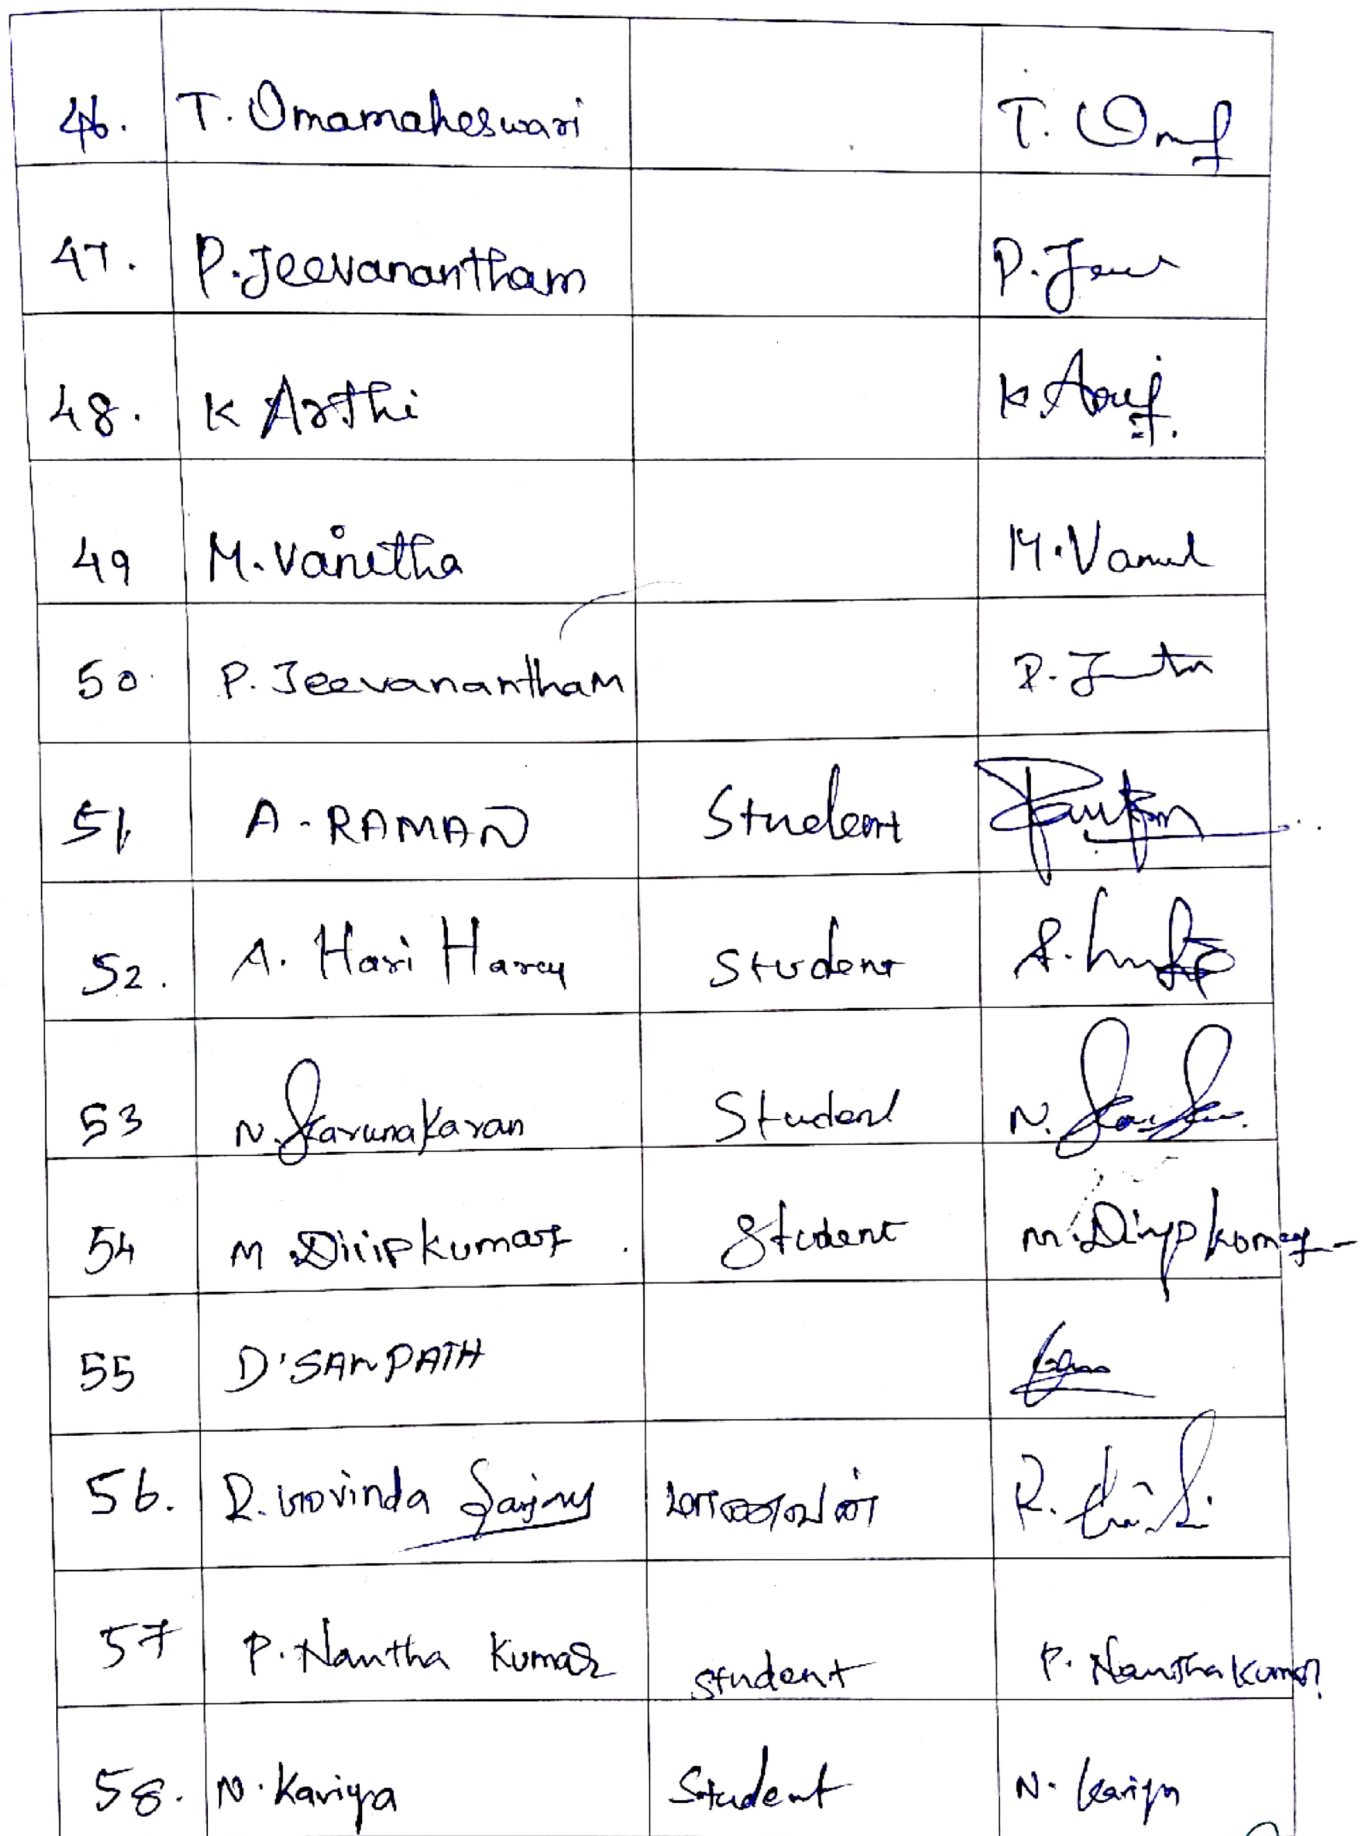 46. T. Omamaheswari T. Omf
47. P. Jeevanantham P. Jeev
48. K Arthi K
49 M. Vanitha M. Vanul
50 P. Jeevananthám P.
51 A - RAMAN Student
52. A. Hari Haran Student A.
53 N. Karunakaran Student N.
54 M. Dilipkumar Student M. Dilipkumar
55 D. SAMPATH
56. R. Govinda Sanjay மாணவன் R.
57 P. Nantha Kumar student P. Nantha Kumar
58. N. Kaviya Student N. Kaviya